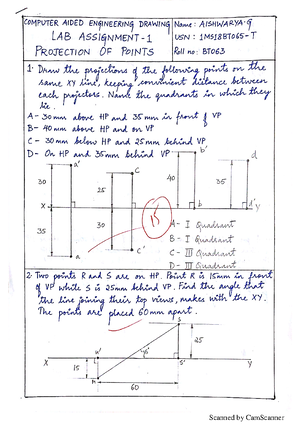 COMPUTER AIDED ENGINEERING DRAWING
LAB ASSIGNMENT-1
PROJECTION OF POINTS
Name: AISHWARYA.G
USN: 1MS18BT065-T
Roll no: BT063
1. Draw the projections of the following points on the
same XY line, keeping convenient distance between
each projectors. Name the quadrants in which they
lie.
A- 30mm above HP and 35mm in front of VP
B- 40mm above HP and on VP
C- 30mm below HP and 25mm behind VP
D- On HP and 35mm behind VP
a'
b'
d
30
25
40
35
X
b
d' Y
35
30
a
C'
15
A- I Quadrant
B- I Quadrant
C- III Quadrant
D- III Quadrant
2. Two points R and S are on HP. Point R is 15mm in front
of VP while S is 25mm behind VP. Find the angle that
the line joining their top views, makes with the XY.
The points are placed 60mm apart.
25
X
S'
Y
15
60
Scanned by CamScanner